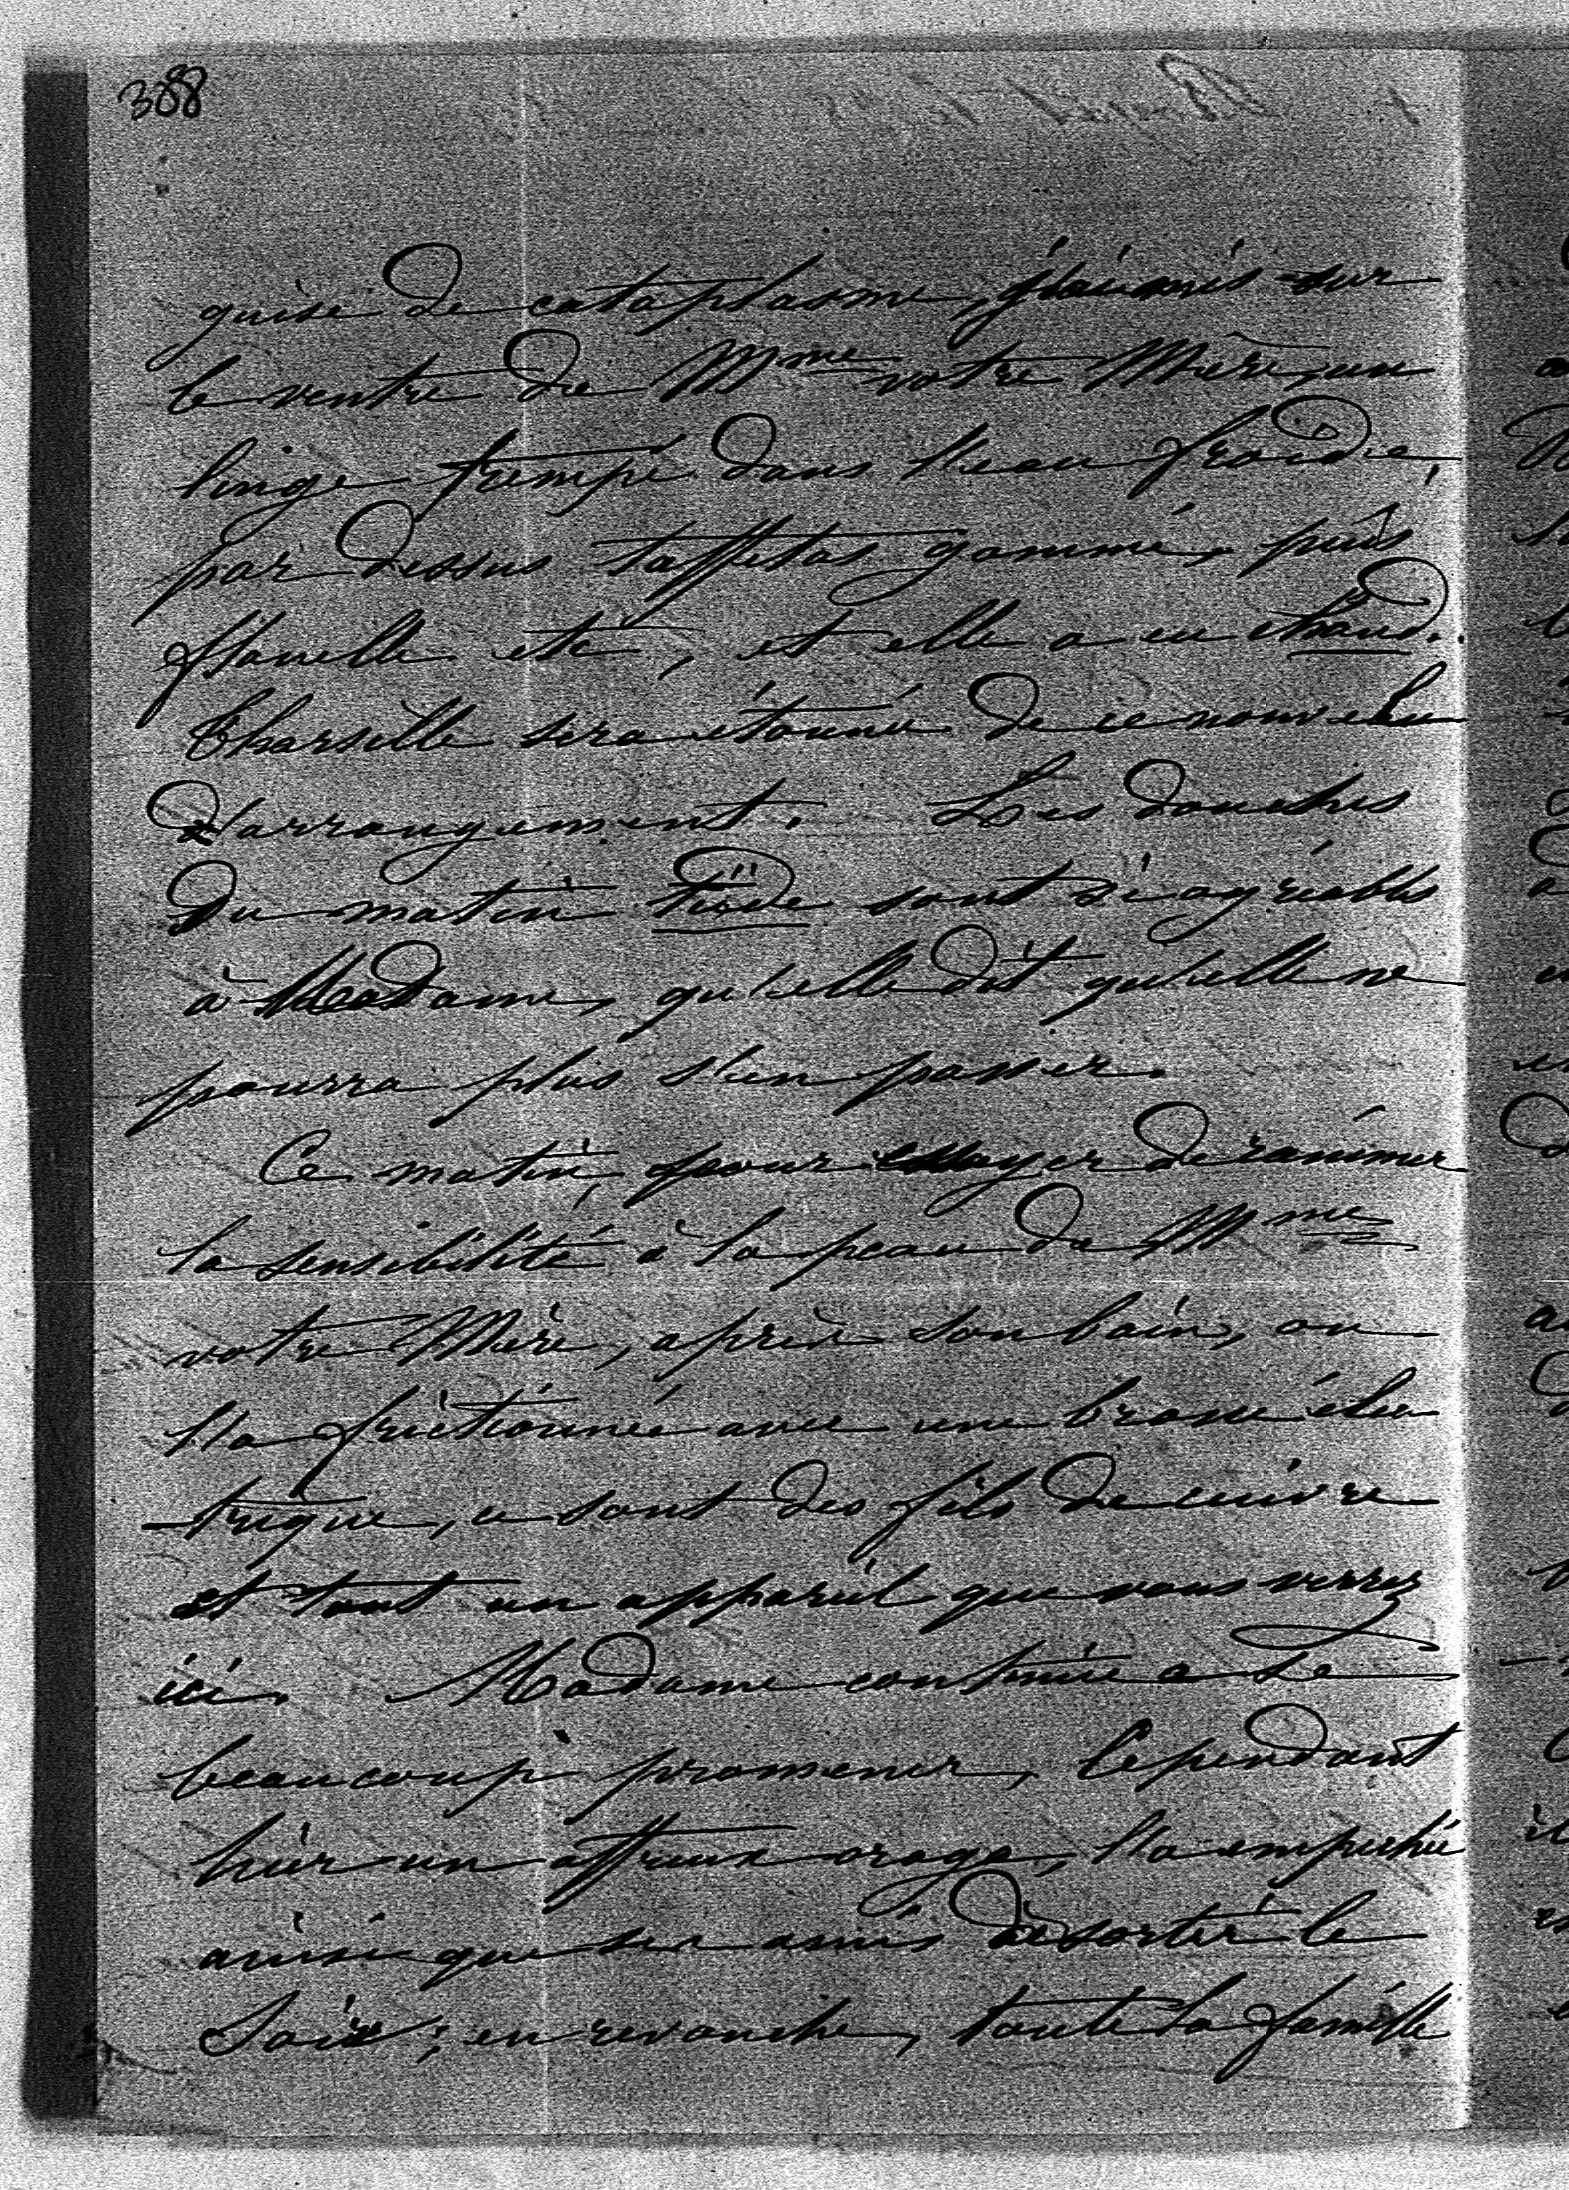 388
guise de cataplasme, j'ai mis sur
le ventre de Mme votre Mère, un
linge trempé dans l'eau froide,
par dessus taffetas gommé, puis
flanelle etc, et elle a eu chaud.
Tharsille sera étonné de ce nouveau
d'arrangement. Les douches
du matin tiède sont si agréables
à Madame, qu'elle dit qu'elle ne
pourra plus s'en passer.
Ce matin, pour essayer de ranimer
la sensibilité à la peau de Mme
votre Mère, après son bain, on
l'a frictionnée avec une brosse élec
-trique, ce sont des fils de cuivre
et tout un appareil que vous verrez
ici. Madame continue a se
beaucoup promener, cependant
hier un affreux orage, l'a empêchée
ainsi que ses amis de sortir le
soir; en revanche, toute la famille